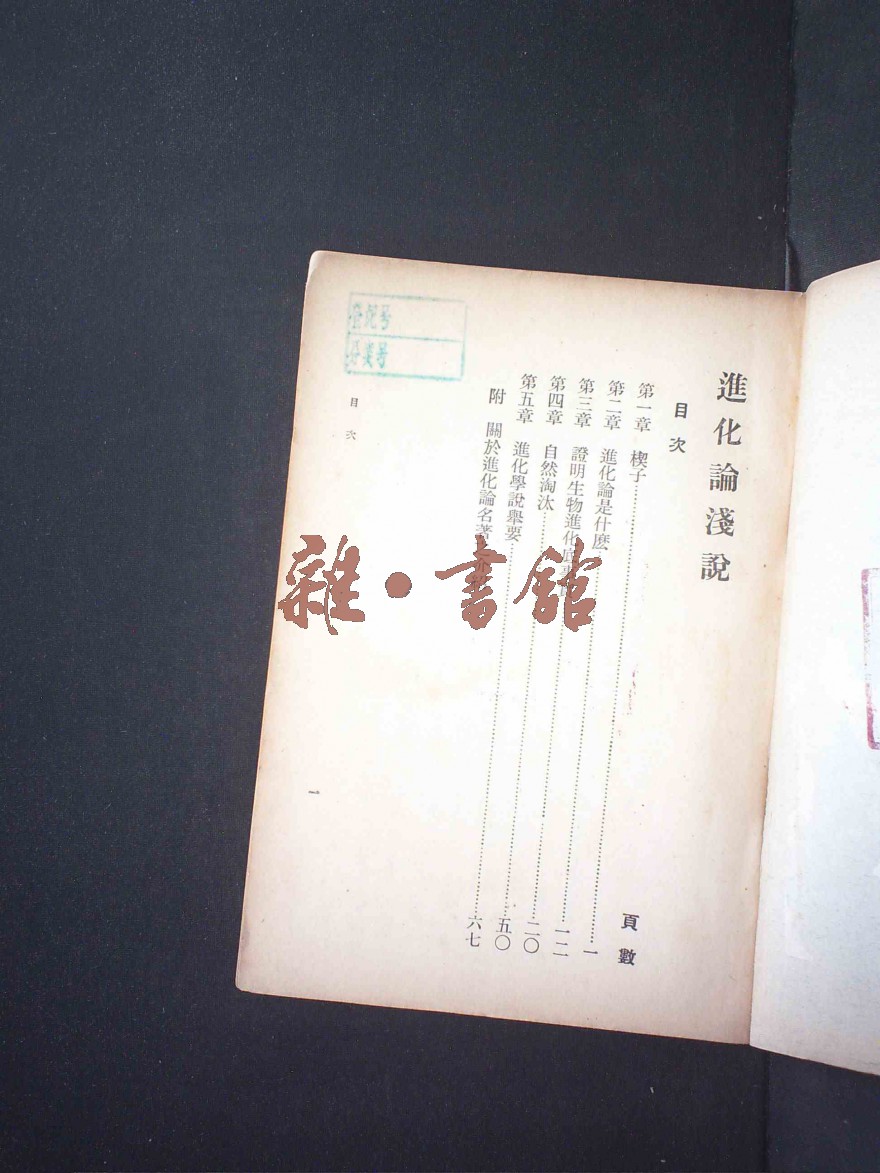 進化論淺說
目次
頁數
第一章 楔子……一
第二章 進化論是什麽……一二
第三章 證明生物進化底……二〇
第四章 自然淘汰……五〇
第五章 進化學說舉要……六七
附 關於進化論名著
目次
一
雜·書館